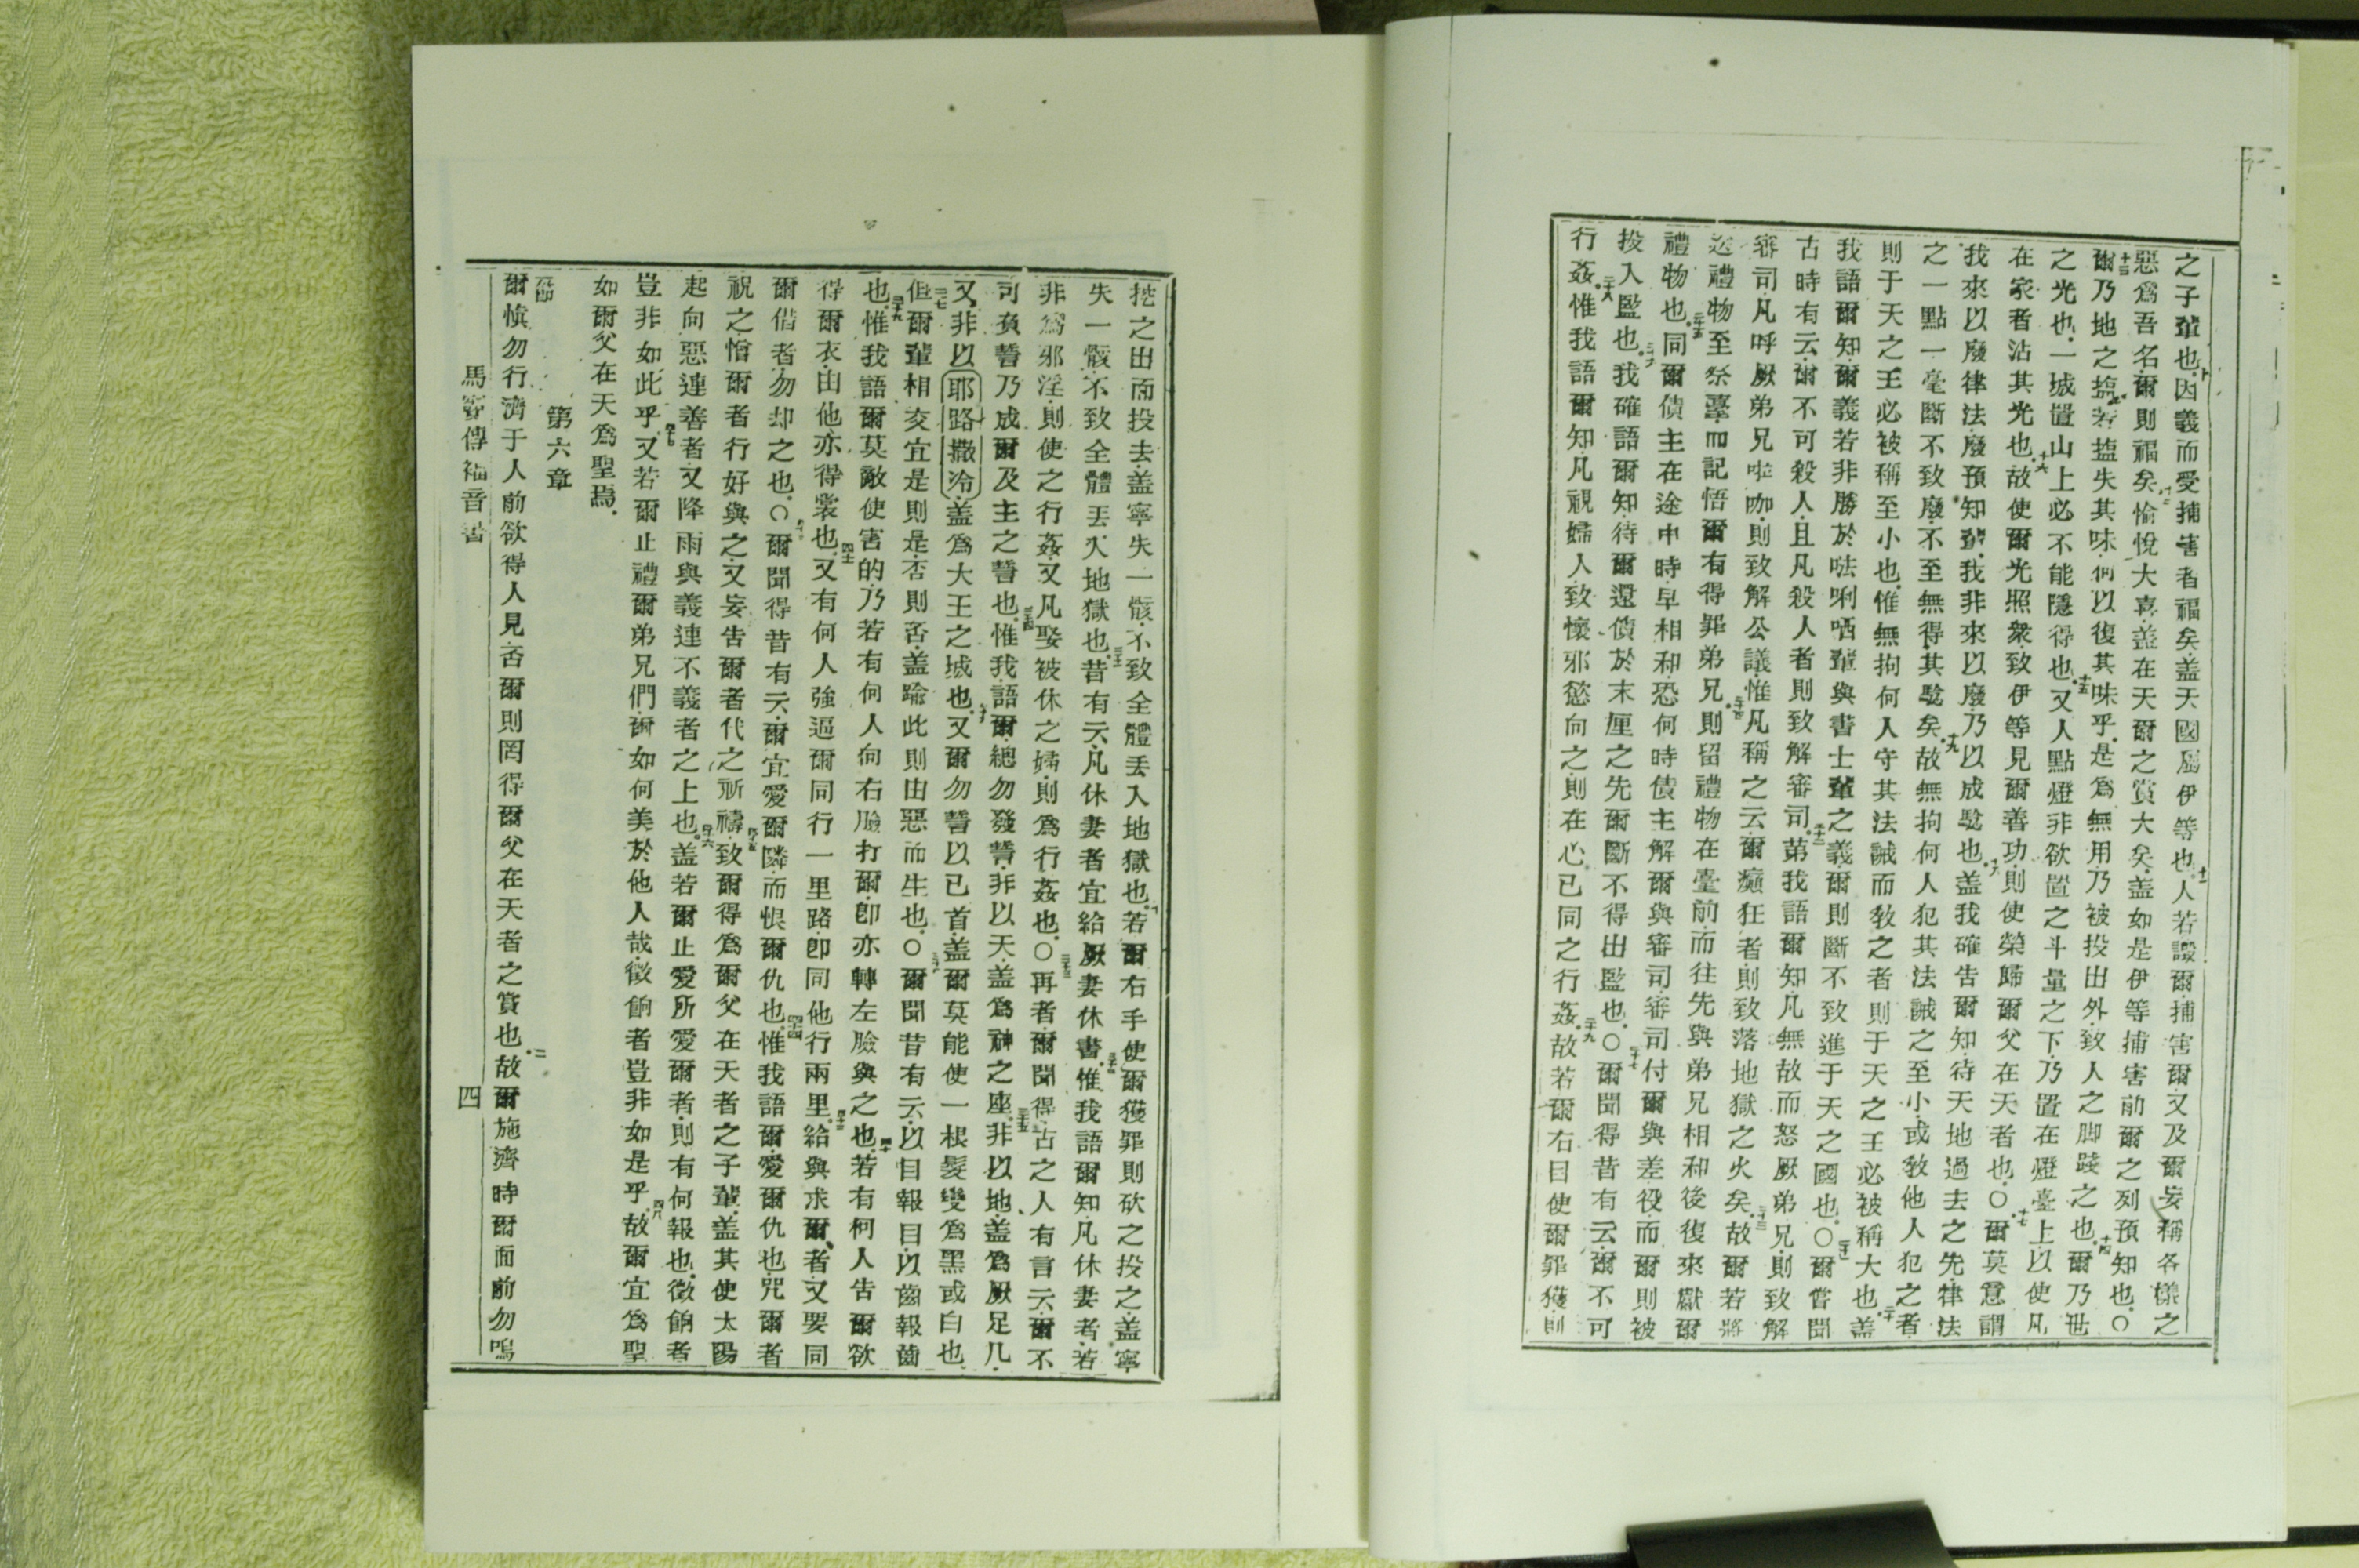 之子輩也因義而受捕害者福矣盖天國屬伊等也十一人若譭爾捕害爾又及爾妄稱各樣之
惡爲吾名爾則福矣十二愉悅大喜盖在天爾之賞大矣盖如是伊等捕害前爾之列預知也○
十三爾乃地之塩若塩失其味何以復其味乎是爲無用乃被投出外致人之脚踐之也十四爾乃世
之光也一城置山上必不能隱得也十五又人點燈非欲置之斗量之下乃置在燈臺上以使凡
在家者沾其光也十六故使爾光照衆致伊等見爾善功則使榮歸爾父在天者也○十七爾莫意謂
我來以廢律法廢預知輩我非來以廢乃以成騐也十八盖我確告爾知待天地過去之先律法
之一點一毫斷不致廢不至無得其騐矣十九故無拘何人犯其法誡之至小或敎他人犯之者
則于天之王必被稱至小也惟無拘何人守其法誡而敎之者則于天之王必被稱大也二十盖
我語爾知爾義若非勝於㕸唎哂輩與書士輩之義爾則斷不致進于天之國也○二十一爾嘗聞
古時有云爾不可殺人且凡殺人者則致解審司二十二苐我語爾知凡無故而怒厥弟兄則致解
審司凡呼厥弟兄啦咖則致解公議惟凡稱之云爾癲狂者則致落地獄之火矣二十三故爾若將
送禮物至祭臺而記悟爾有得罪弟兄二十四則留禮物在臺前而往先與弟兄相和後復來獻爾
禮物也二十五同爾債主在途中時早相和恐何時債主解爾與審司審司付爾與差役而爾則被
投入監也二十六我確語爾知待爾還債於末厘之先爾斷不得出監也○二十七爾聞得昔有云爾不可
行姦二十八惟我語爾知凡視婦人致懷邪慾向之則在心已同之行姦二十九故若爾右目使爾罪獲則
挖之出而投去盖寧失一骸不致全體丢入地獄也三十若爾右手使爾獲罪則砍之投之盖寧
失一骸不致全體丢入地獄也三十一昔有云凡休妻者宜給厥妻休書三十二惟我語爾知凡休妻者若
非爲邪淫則使之行姦又凡娶被休之婦則爲行姦也○三十三再者爾聞得古之人有言云爾不
可負誓乃成爾及主之誓也三十四惟我語爾總勿發誓非以天盖爲神之座三十五非以地盖爲厥足几
又非以耶路撒冷盖爲大王之城也三十六又爾勿誓以已首盖爾莫能使一根髮變爲黑或白也
三十七但爾輩相交宜是則是否則否盖踰此則由惡而生也○三十八爾聞昔有云以目報目以齒報齒
也三十九惟我語爾莫敵使害的乃若有何人向右臉打爾卽亦轉左臉與之也四十若有柯人告爾欲
得爾衣由他亦得裳也四十一又有何人強逼爾同行一里路卽同他行兩里四十二給與求爾者又要同
爾借者勿却之也○四十三爾聞得昔有云爾宜愛爾隣而恨爾仇也四十四惟我語爾愛爾仇也咒爾者
祝之憎爾者行好與之又妄告爾者代之祈禱四十五致爾得爲爾父在天者之子輩盖其使太陽
起向惡連善者又降雨與義連不義者之上也四十六盖若爾止愛所愛爾者則有何報也徵餉者
豈非如此乎四十七又若爾止禮爾弟兄們爾如何美於他人哉徵餉者豈非如是乎四八故爾宜爲聖
如爾父在天爲聖焉
第六章
爾愼勿行濟于人前欲得人見否爾則罔得爾父在天者之賞也二故爾施濟時爾面前勿鳴
馬竇傳福音書
四